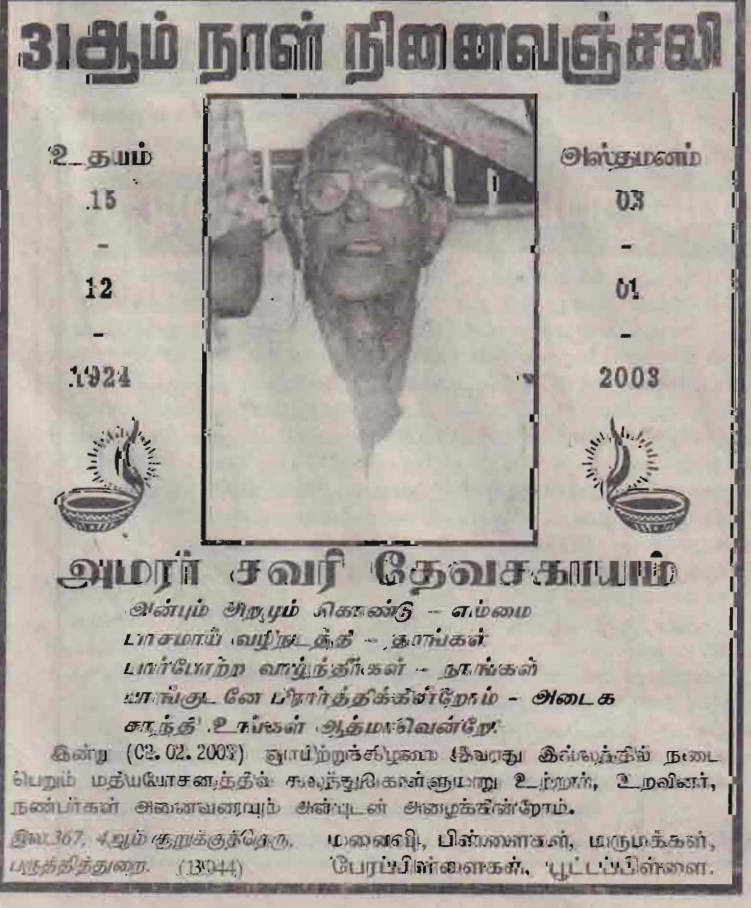 31ஆம் நாள் நினைவஞ்சலி
உதயம்
15
-
12
-
1924
அஸ்தமனம்
03
-
01
-
2003
அமரர் சவரி தேவசகாயம்
அன்பும் அறமும் கொண்டு - எம்மை
பாசமாய் வழிநடத்தி - தாங்கள்
பார்போற்ற வாழ்ந்தீர்கள் - நாங்கள்
பாங்குடனே பிரார்த்திக்கின்றோம் - அடைக
சாந்தி உங்கள் ஆத்மாவென்றே
இன்று (02.02.2003) ஞாயிற்றுக்கிழமை இவரது இல்லத்தில் நடை
பெறும் மதியபோசனத்தில் கலந்துகொள்ளுமாறு உற்றார், உறவினர்,
நண்பர்கள் அனைவரையும் அன்புடன் அழைக்கின்றோம்.
இல.367, 4ஆம் குறுக்குத்தெரு,
பருத்தித்துறை. (13944)
மனைவி, பிள்ளைகள், மருமக்கள்,
பேரப்பிள்ளைகள், பூட்டப்பிள்ளை.